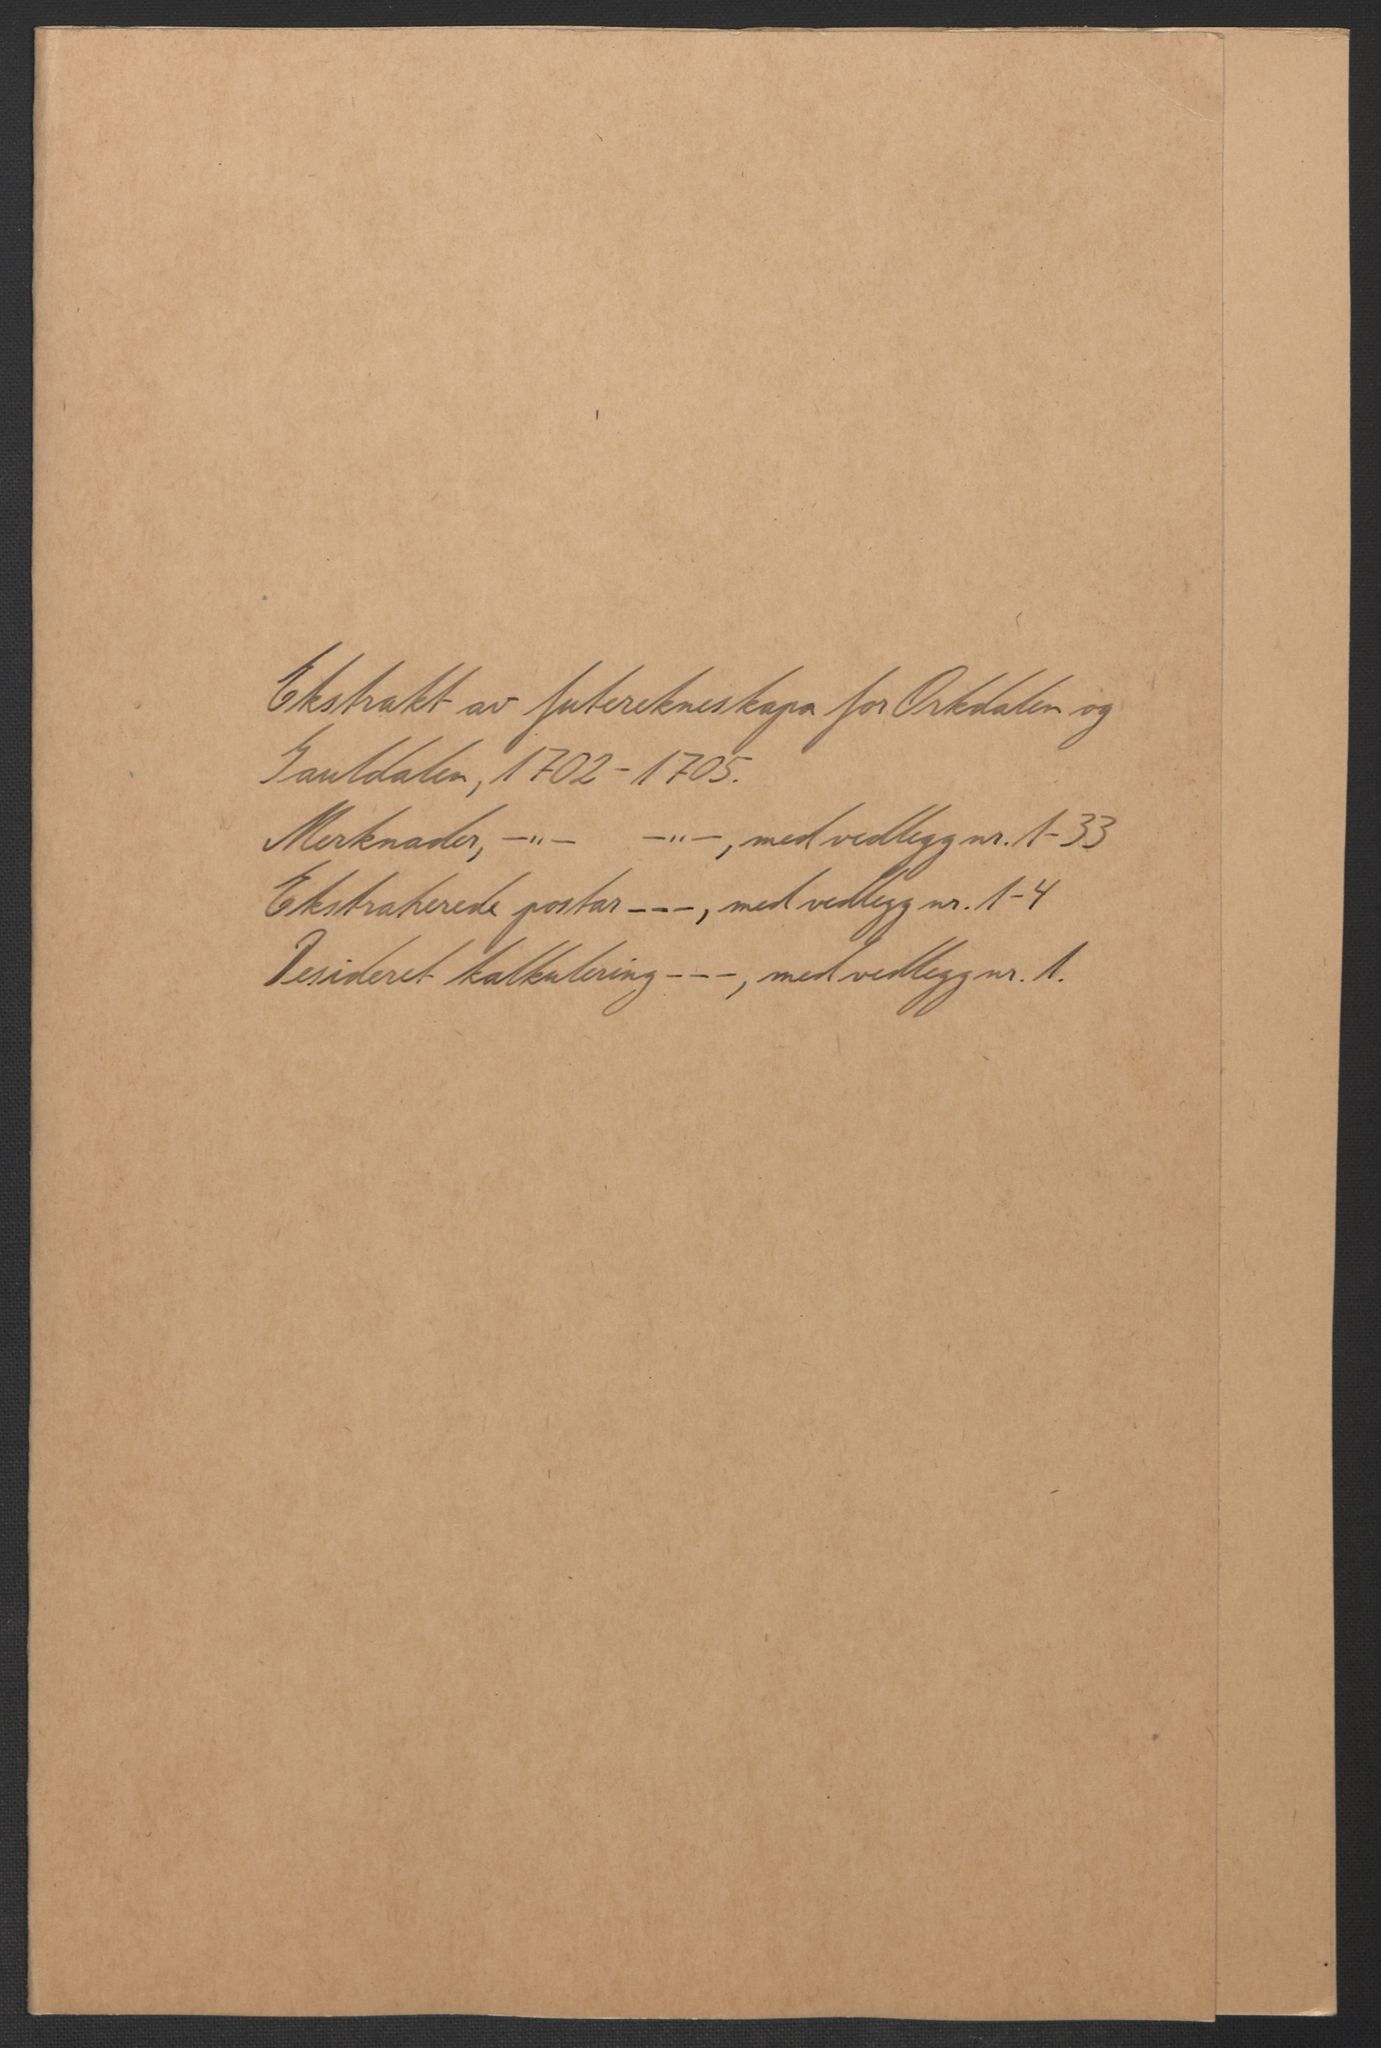 Ekstrakt av futerekneskapa for Orkdalen og
Gauldalen, 1702-1705.
Merknader, -"- -"-, med vedlegg nr. 1-33
Ekstraherede postar ---, med vedlegg nr. 1-4
Desideret kalkulering ---, med vedlegg nr. 1.